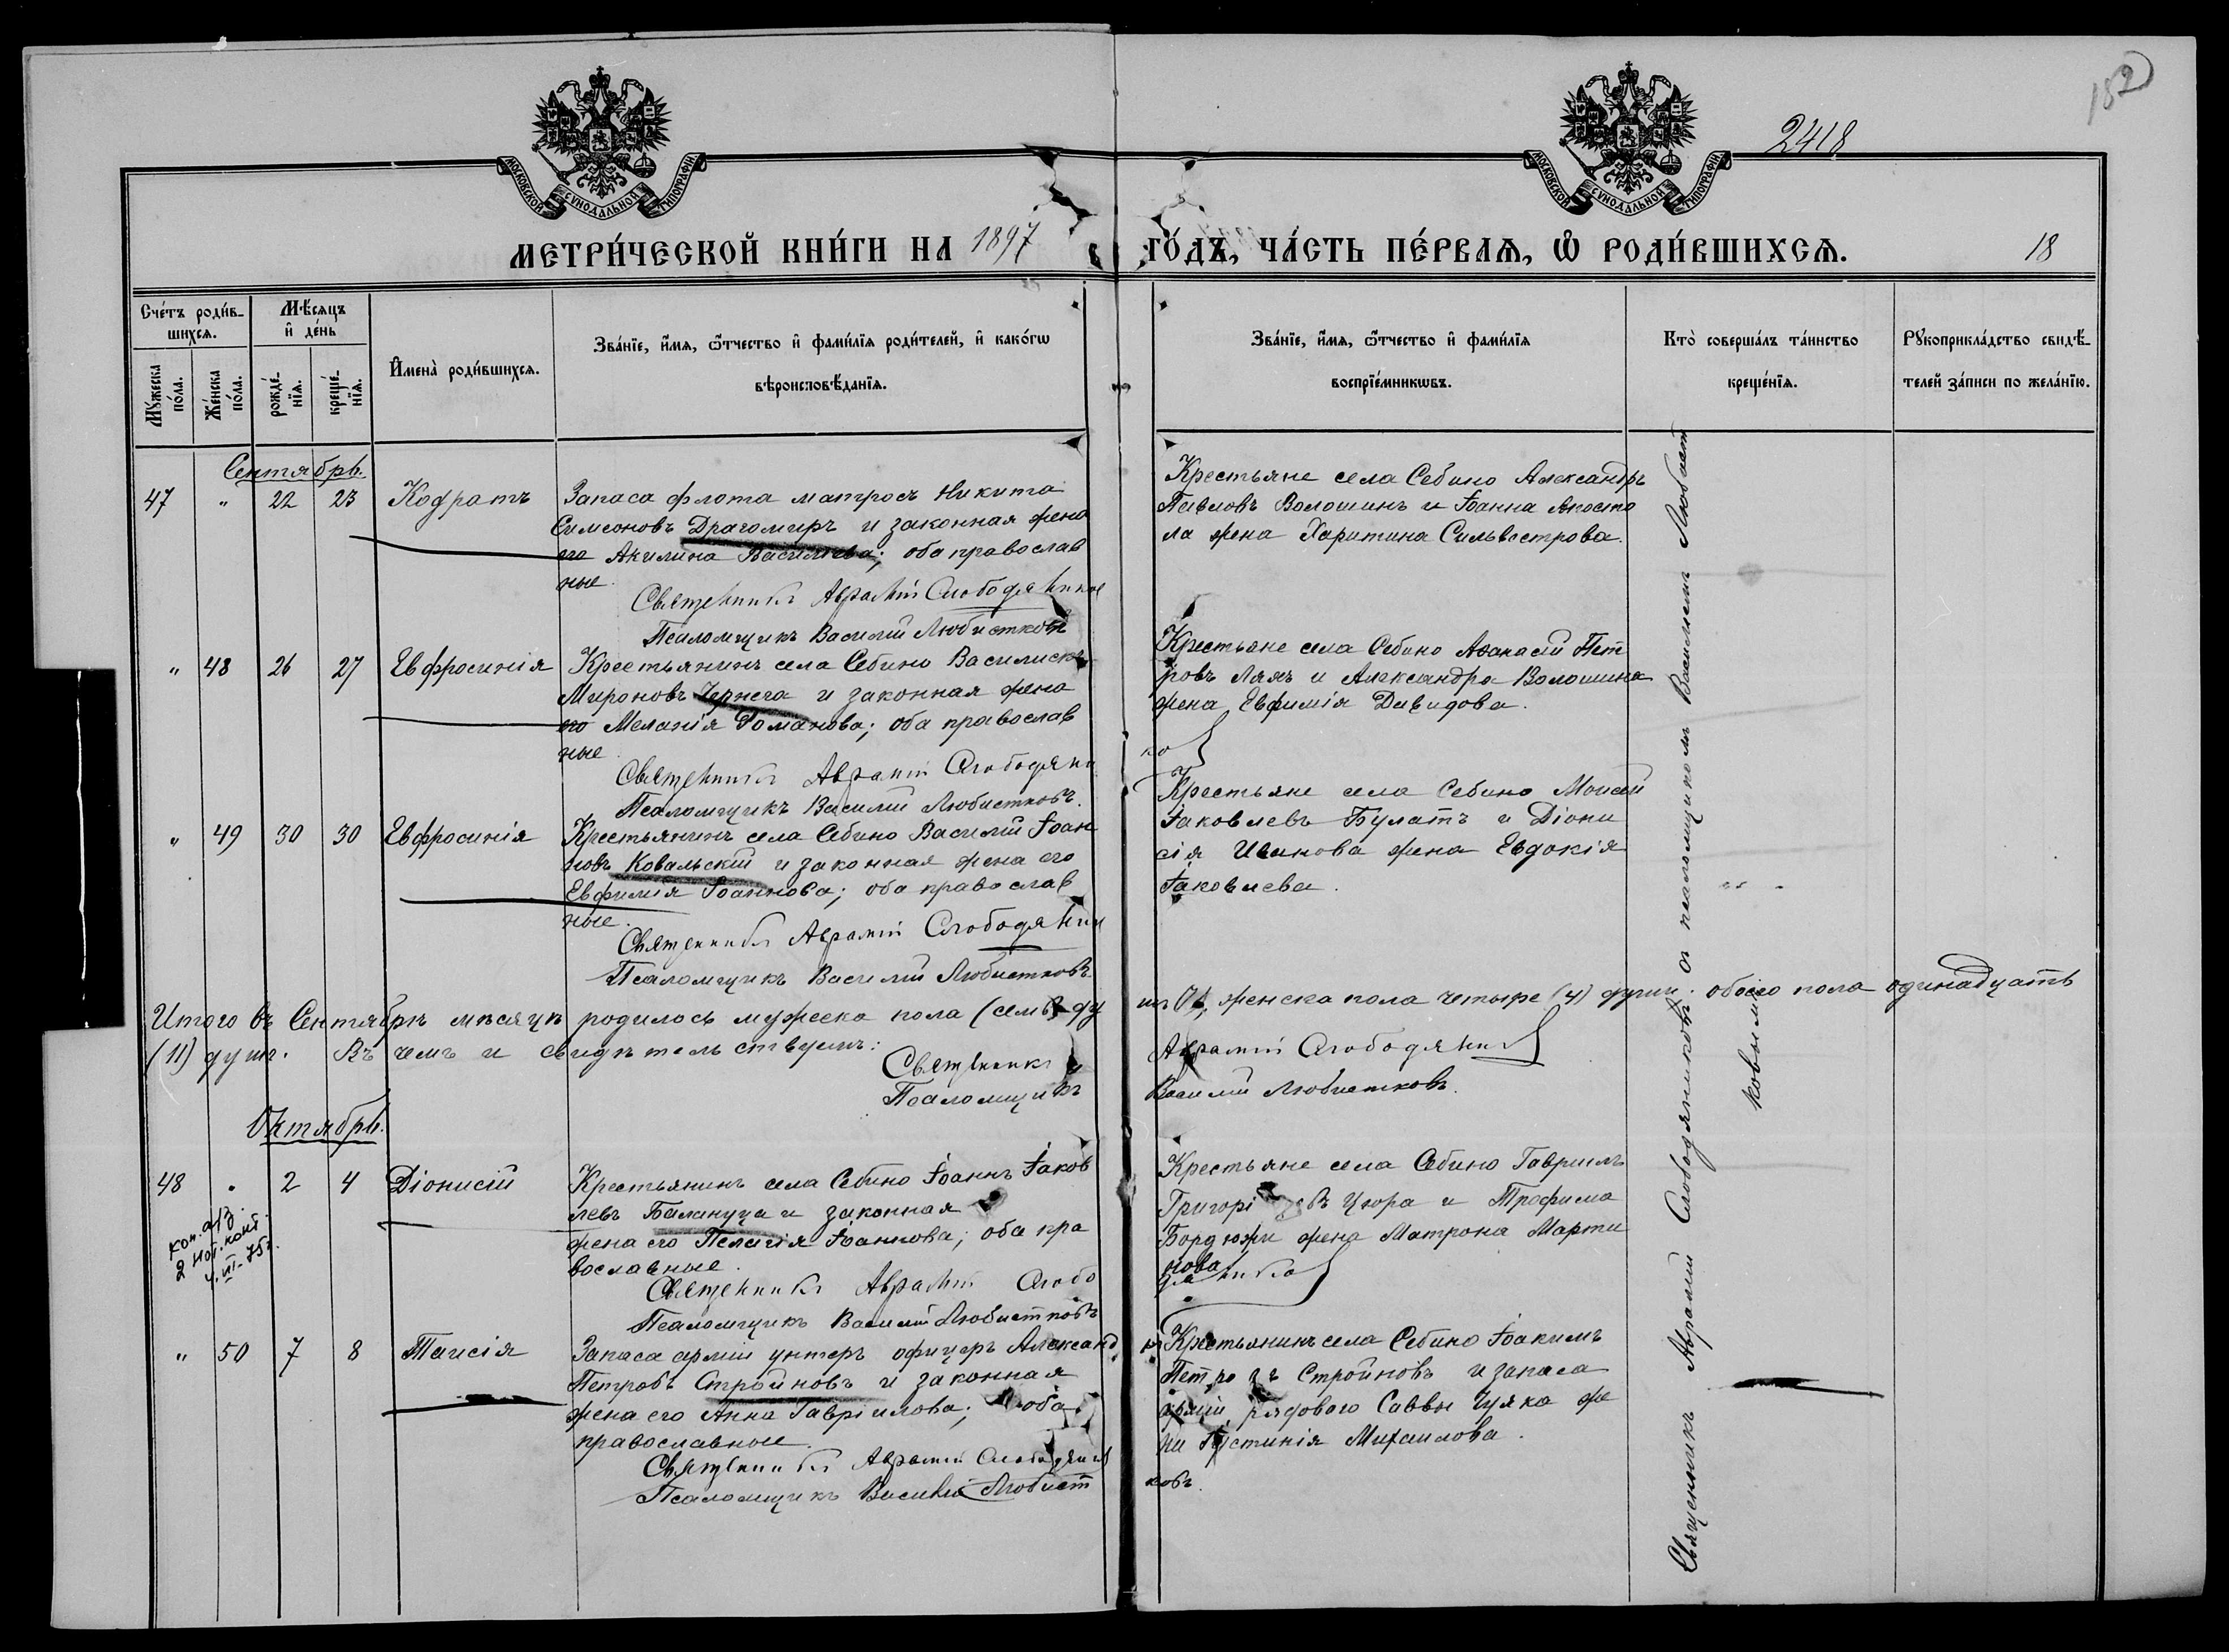 152
2418
МОСКОВСКОЙ СѴНОДАЛЬНОЙ ТИПОГРАФІИ
МОСКОВСКОЙ СѴНОДАЛЬНОЙ ТИПОГРАФІИ
МЕТРИ́ЧЕСКОЙ КНИ́ГИ НА 1897 ГО́ДЪ, ЧА́СТЬ ПЕ́РВАѦ, Ѡ҆ РОДИ́ВШИХСѦ. 18
Сче́тъ роди́в-
шихсѧ.
Мꙋ́жеска по́ла.
Же́нска по́ла.
Мѣ́сяцъ и҆ де́нь
рожде́-нїѧ.
креще́-нїѧ.
И҆мена̀ роди́вшихсѧ.
Зва́нїе, и҆́мѧ, ѻ҆́тчество и҆ фами́лїѧ роди́телей, и҆ како́гѡ
вѣроисповѣ́данїѧ.
Зва́нїе, и҆́мѧ, ѻ҆́тчество и҆ фами́лїѧ
воспрїе́мникѡвъ.
Кто̀ соверша́лъ та́инство
креще́нїѧ.
Рꙋкоприкла́дство свидѣ́-
телей за́писи по жела́нїю.
Сентябрь.
47 " 22 23 Кодратъ
Запаса флота матросъ Никита
Симеоновъ Драгомиръ и законная жена
его Акилина Васильева; оба православ
ные.
Священникъ Аврамій Слободяников
Псаломщикъ Василій Любистковъ
Крестьяне села Себино Александръ
Павловъ Волошинъ и Іоанна Апосто
ла жена Харитина Сильвестрова.
" 48 26 27 Евфросинія
Крестьянинъ села Себино Василискъ
Мироновъ Чернега и законная жена
его Меланія Романова; оба православ
ные.
Священникъ Аврамій Слободяни
ко
Псаломщикъ Василій Любистковъ.
Крестьяне села Себино Аѳанасій Пет
ровъ Лямъ и Александра Волошина
жена Евфимія Давидова.
" 49 30 30 Евфросинія
Крестьянинъ села Себино Василій Іоан
новъ Ковальскій и законная жена его
Евфимія Іоаннова; оба православ
ные.
Священникъ Аврамій Слободяник
Псаломщикъ Василій Любистковъ
Крестьяне села Себино Моисей
Іаковлевъ Булатъ и Діони
сія Иванова жена Евдокія
Іаковлева.
Итого въ Сентябрѣ мѣсяцѣ родилось мужеска пола (семь) ду
шъ, женска пола четыре (4) души. обоего пола одинадцать
(11) душъ. Въ чемъ и свидѣтельствуемъ:
Священникъ Аврамій Слободяник
Псаломщикъ Василій Любистковъ.
Октябрь.
48 " 2 4 Діонисій
Крестьянинъ села Себино Іоаннъ Іаков
левъ Балануца и законная
жена его Пелагія Іоаннова; оба пра
вославные.
Священникъ Аврамій Слободяникъ
Псаломщикъ Василій Любистковъ
Крестьяне села Себино Гавриилъ
Григорі евъ Цюра и Трофима
Бордюжи жена Матрона Марти
нова
2 нот. конт.
4.III-75г.
" 50 7 8 Таисія
Запаса арміи унтеръ офицеръ Александръ
Петровъ Стройновъ и законная
жена его Анна Гавріилова; оба
православные.
Священникъ Аврамій Слободяник
Псаломщикъ Василій Любист
ковъ.
Крестьянинъ села Себино Іоакимъ
Петровъ Стройновъ и запаса
арміи рядового Саввы Чуяка же
на Іустинія Михаилова.
Священникъ Аврамій Слободяниковъ съ псаломщикомъ Василіемъ Любист
ковымъ